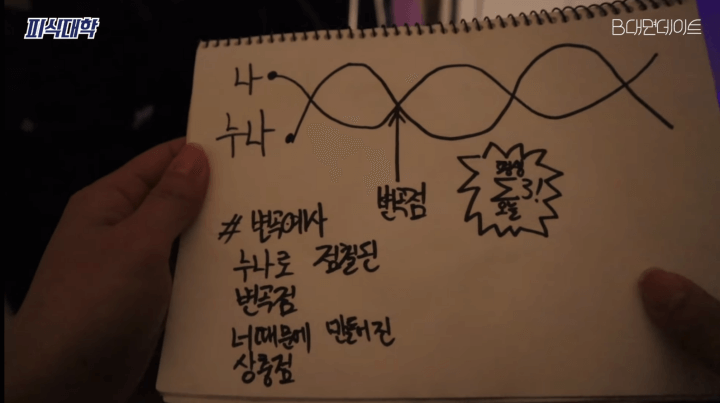 피식대학
B대면데이트
나
누나
변곡점
오늘
# 변곡예사
누나로 점철된
변곡점
너때문에 만들어진
상흉점